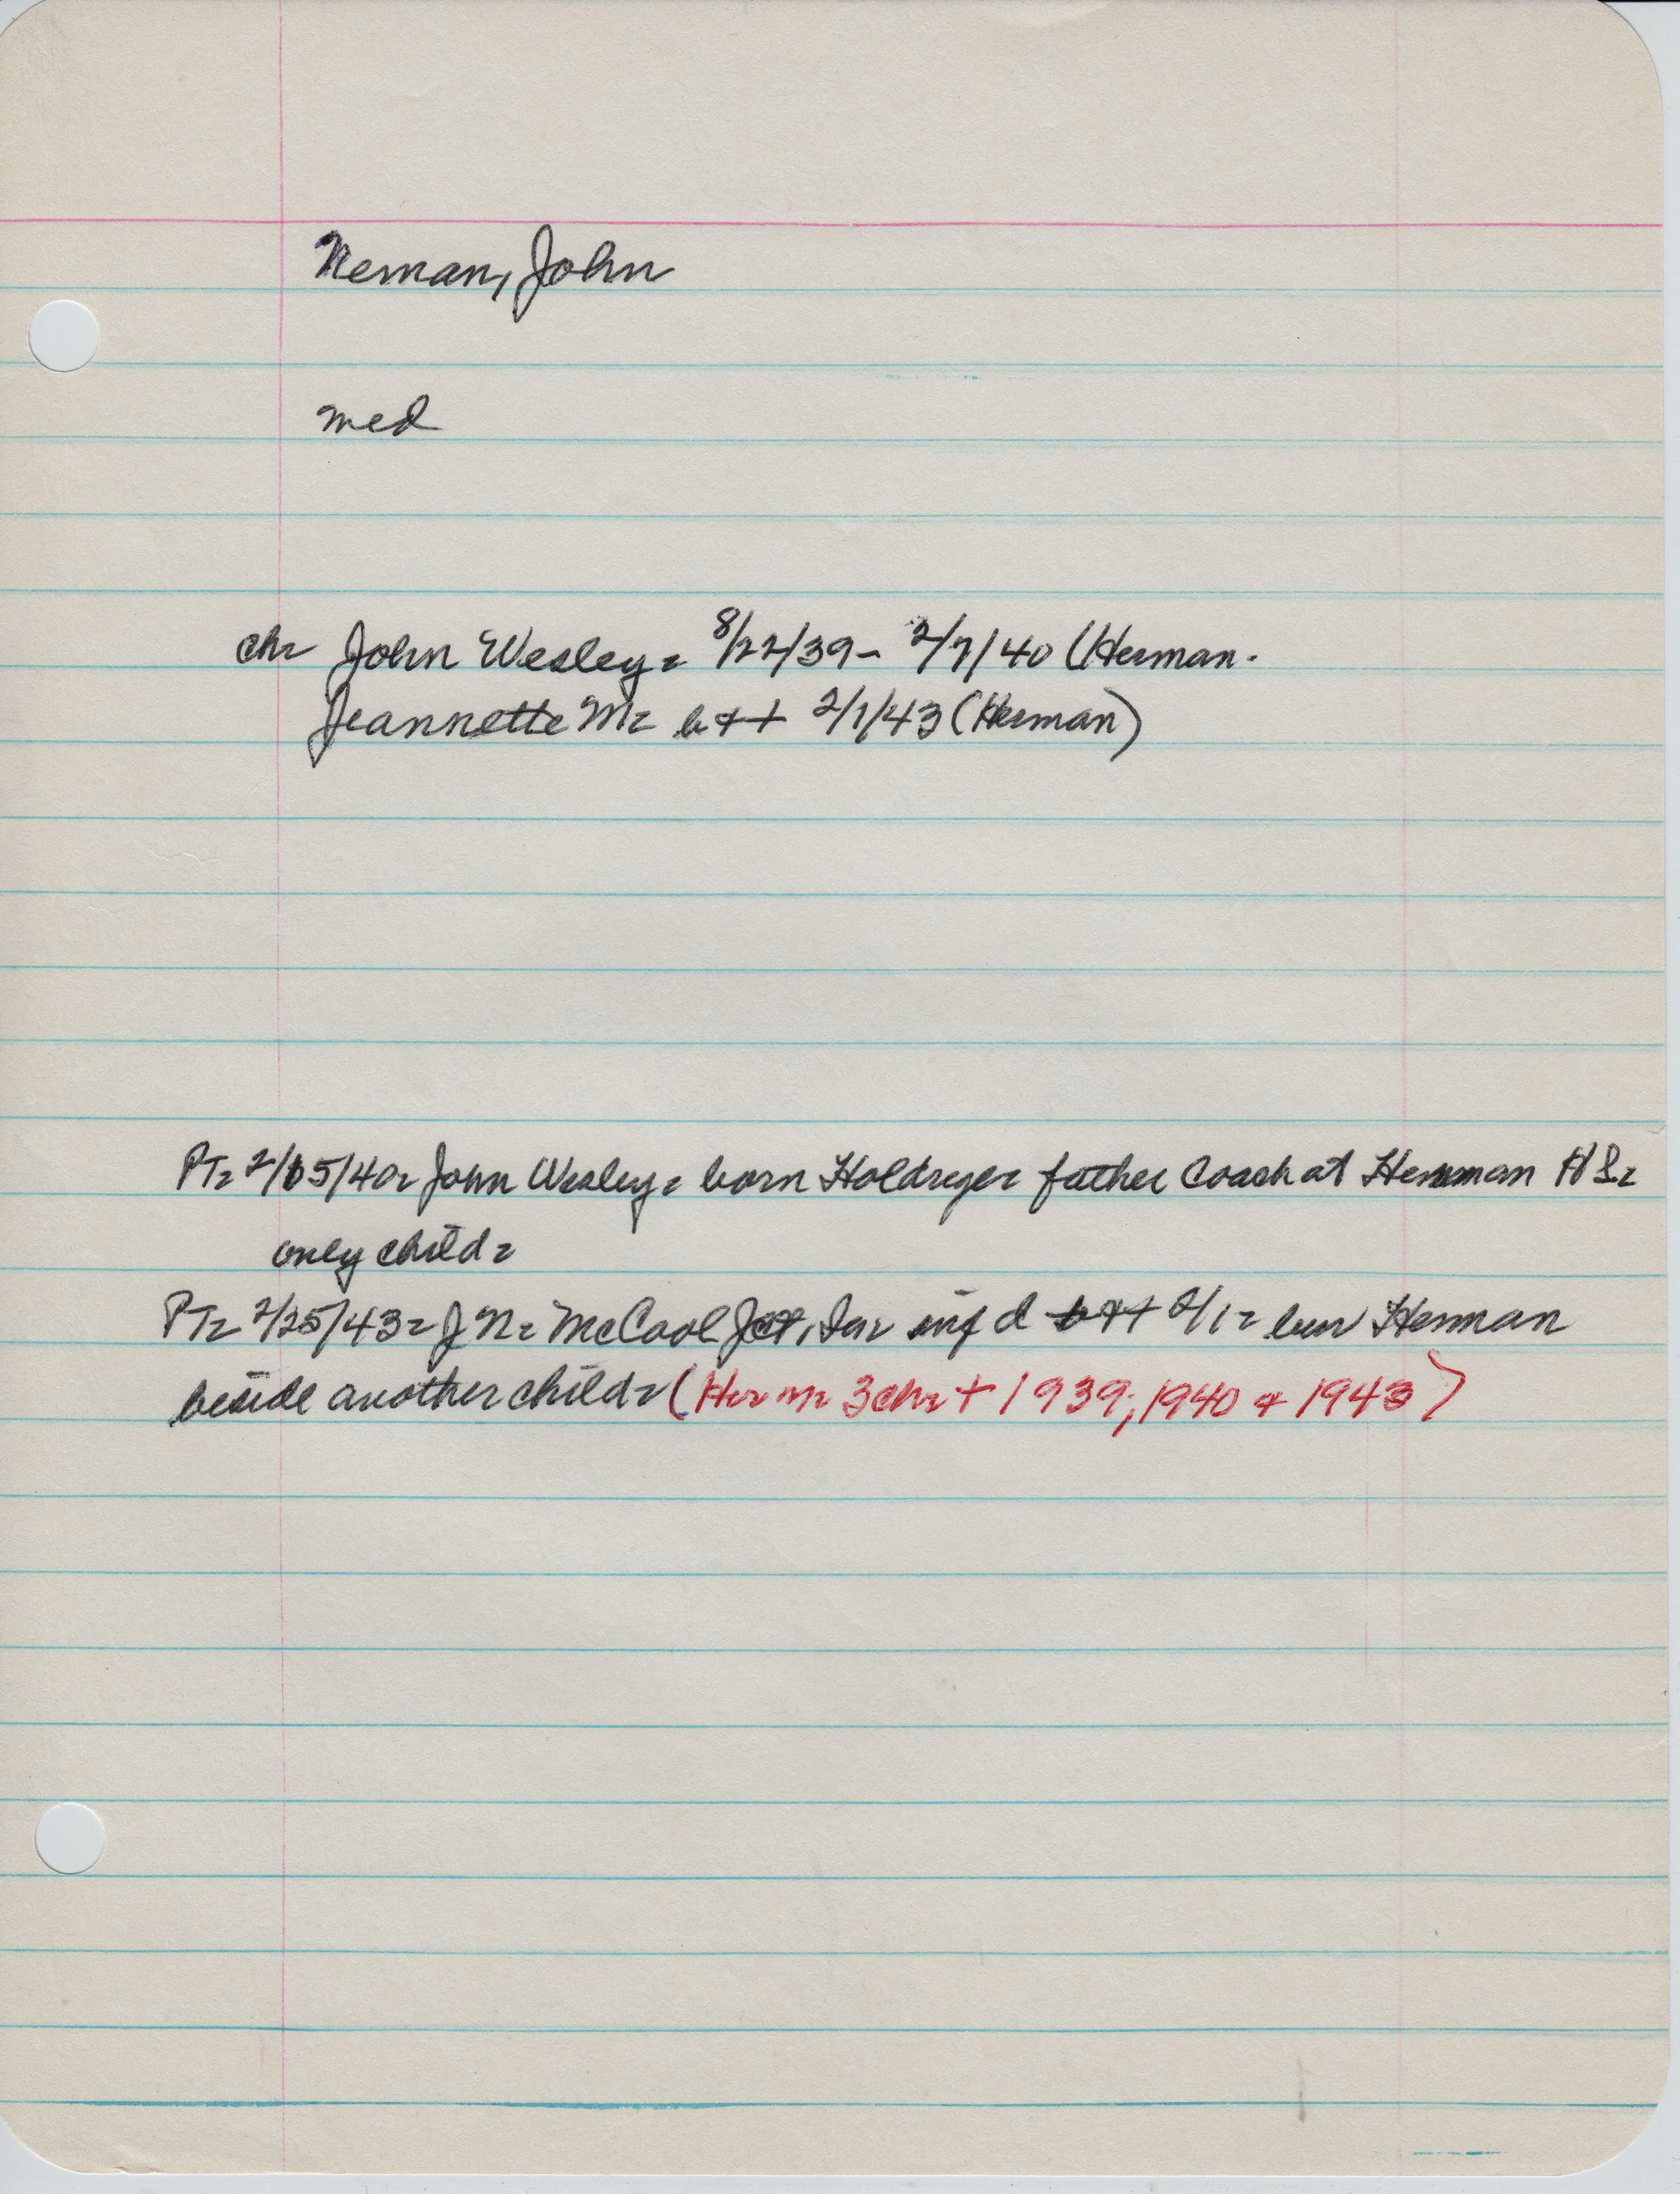 Neman, John
med
ch= John Wesley= 8/22/39- 2/7/40 (Herman.
Jeannette M= b++ 2/1/43 (Herman)
PT= 2/15/40= John Wesley= born Holdrege= father Coach at Herman HS=
only child=
PT= 2/25/43= J N= McCool Jct, inf d b++ 2/1= bur Herman
beside another child= (Her m= 3 ch= + 1939; 1940 + 1943)